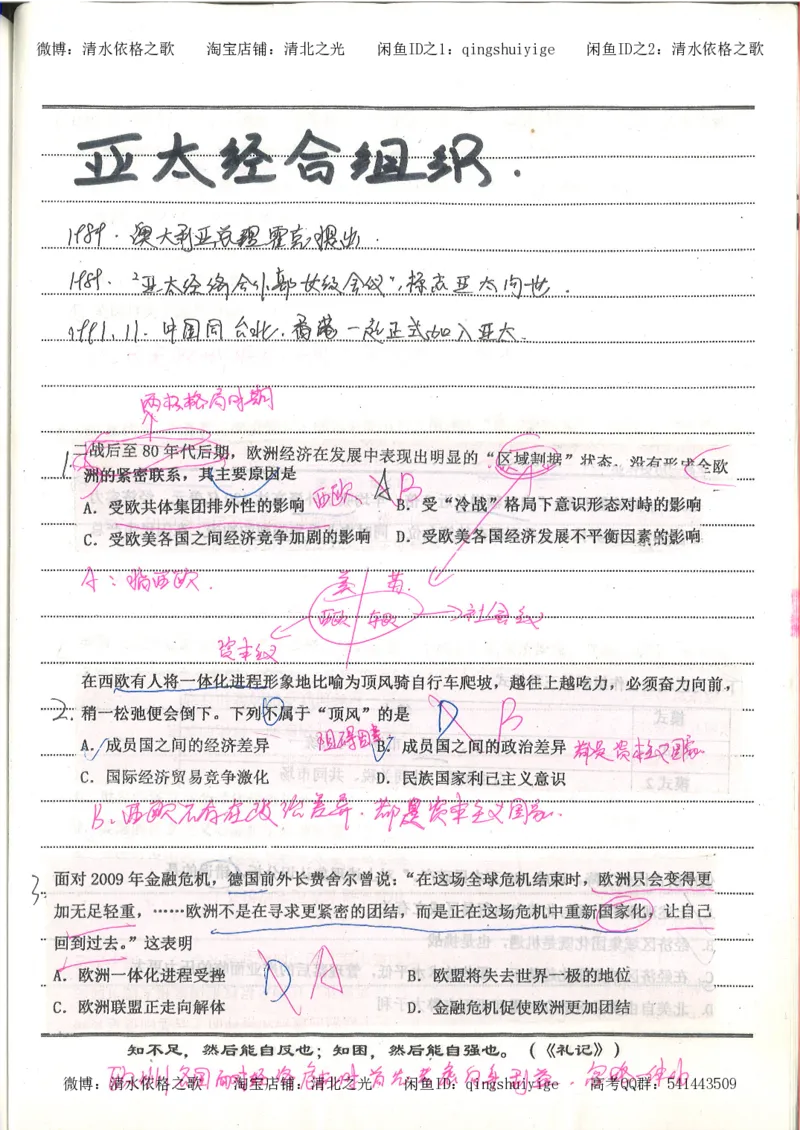 微博：清水依格之歌 淘宝店铺：清北之光 闲鱼ID之1：qingshuiyige 闲鱼ID之2：清水依格之歌
亚太经合组织.
1989. 澳大利亚总理霍克提出.
1989. "亚太经济合作部长级会议", 标志亚太问世.
1991.11. 中国同台北、香港一起正式加入亚太.
两极格局时期
1. 二战后至 80 年代后期，欧洲经济在发展中表现出明显的“区域割据”状态，没有形成全欧
洲的紧密联系，其主要原因是
西欧 A B
A．受欧共体集团排外性的影响 B．受“冷战”格局下意识形态对峙的影响
C．受欧美各国之间经济竞争加剧的影响 D．受欧美各国经济发展不平衡因素的影响
A：指西欧. 美 苏
西欧 东欧 社会主义
资本主义
在西欧有人将一体化进程形象地比喻为顶风骑自行车爬坡，越往上越吃力，必须奋力向前，
2. 稍一松弛便会倒下。下列不属于“顶风”的是 D B
阻碍因素
A．成员国之间的经济差异 B．成员国之间的政治差异 都是资本主义国家
C．国际经济贸易竞争激化 D．民族国家利己主义意识
B. 西欧不存在政治差异. 都是资本主义国家.
3. 面对 2009 年金融危机，德国前外长费舍尔曾说：“在这场全球危机结束时，欧洲只会变得更
加无足轻重，……欧洲不是在寻求更紧密的团结，而是正在这场危机中重新国家化，让自己
回到过去。”这表明
D A
A．欧洲一体化进程受挫 B．欧盟将失去世界一极的地位
C．欧洲联盟正走向解体 D．金融危机促使欧洲更加团结
知不足，然后能自反也；知困，然后能自强也。（《礼记》）
微博：清水依格之歌 淘宝店铺：清北之光 闲鱼ID：qingshuiyige 高考QQ群：541443509